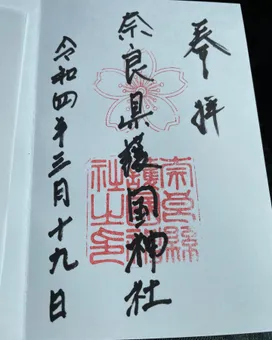 奉拝
奈良県護国神社
令和四年三月十九日
奈良縣護國神社之印